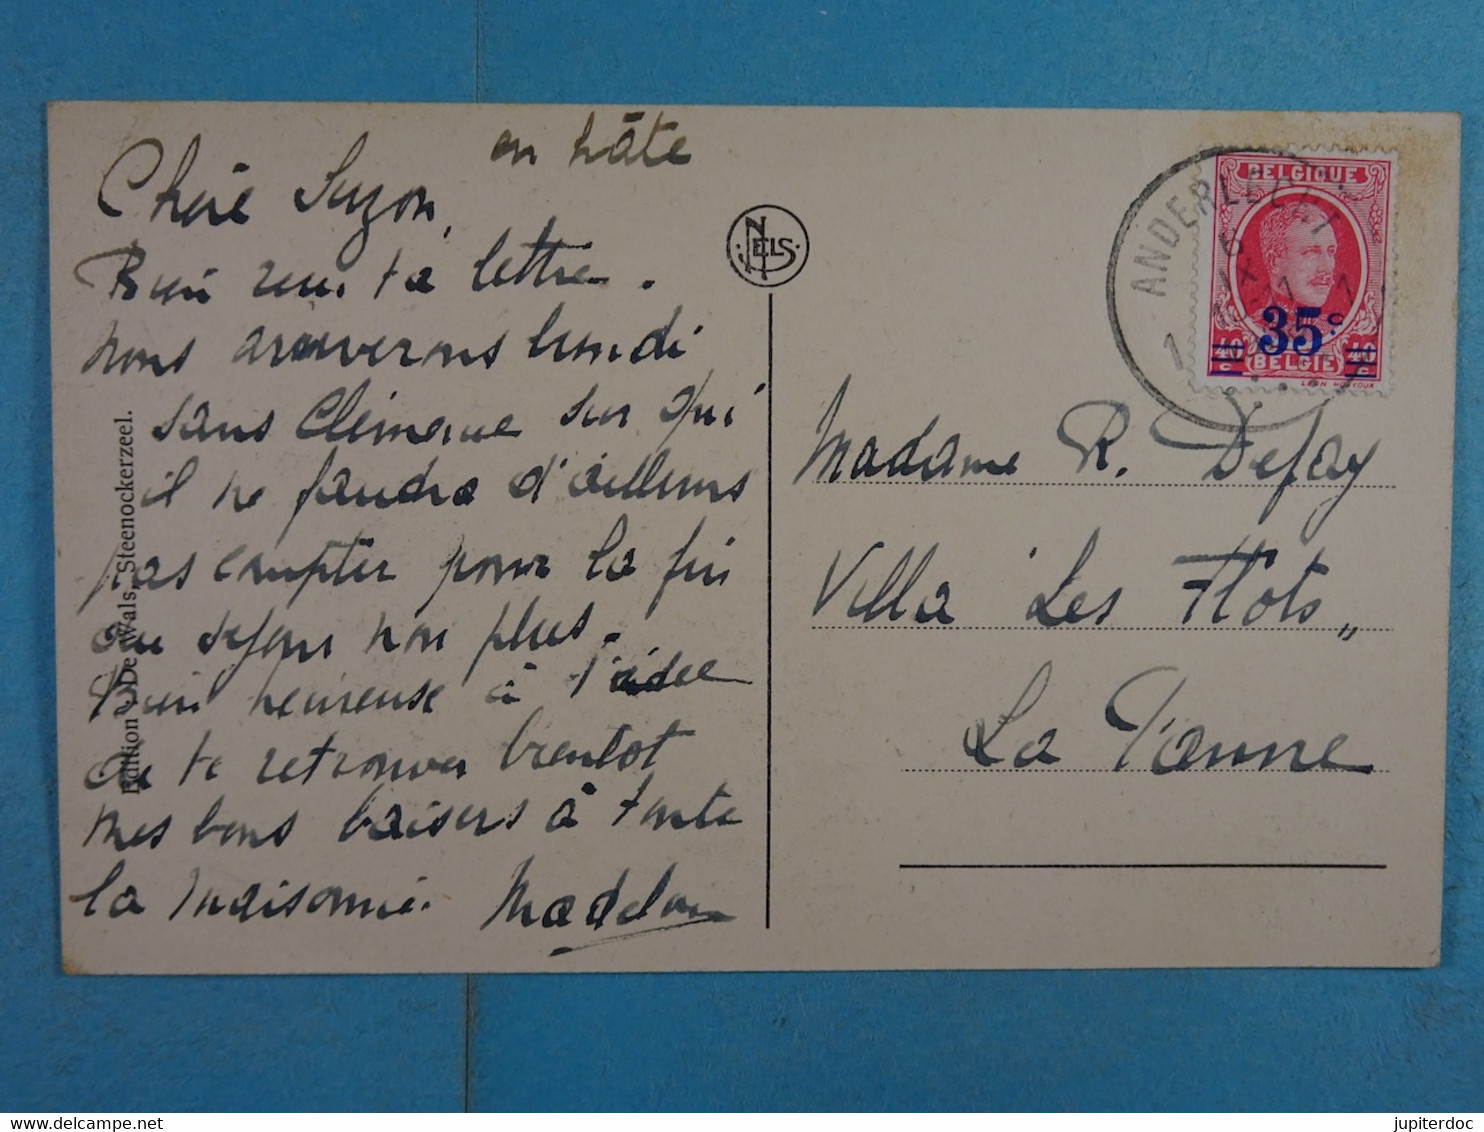 en hâte
Chère Suzon,
Bien reçu ta lettre.
nous arriverons lundi
sans Clémence sur qui
il ne faudra d'ailleurs
pas compter pour la fin
du séjour non plus.
Bien heureuse à l'idée
de te retrouver bientôt
mes bons baisers à toute
la maisonnée. Madelon
Edition De Wals, Steenockerzeel.
NELS
ANDERLECHT
1 1
6
IX
BELGIQUE
35c
40 c 40 c
BELGIE
Madame R. Defay
Villa "Les Flots"
La Panne
jupiterdoc
www.delcampe.net